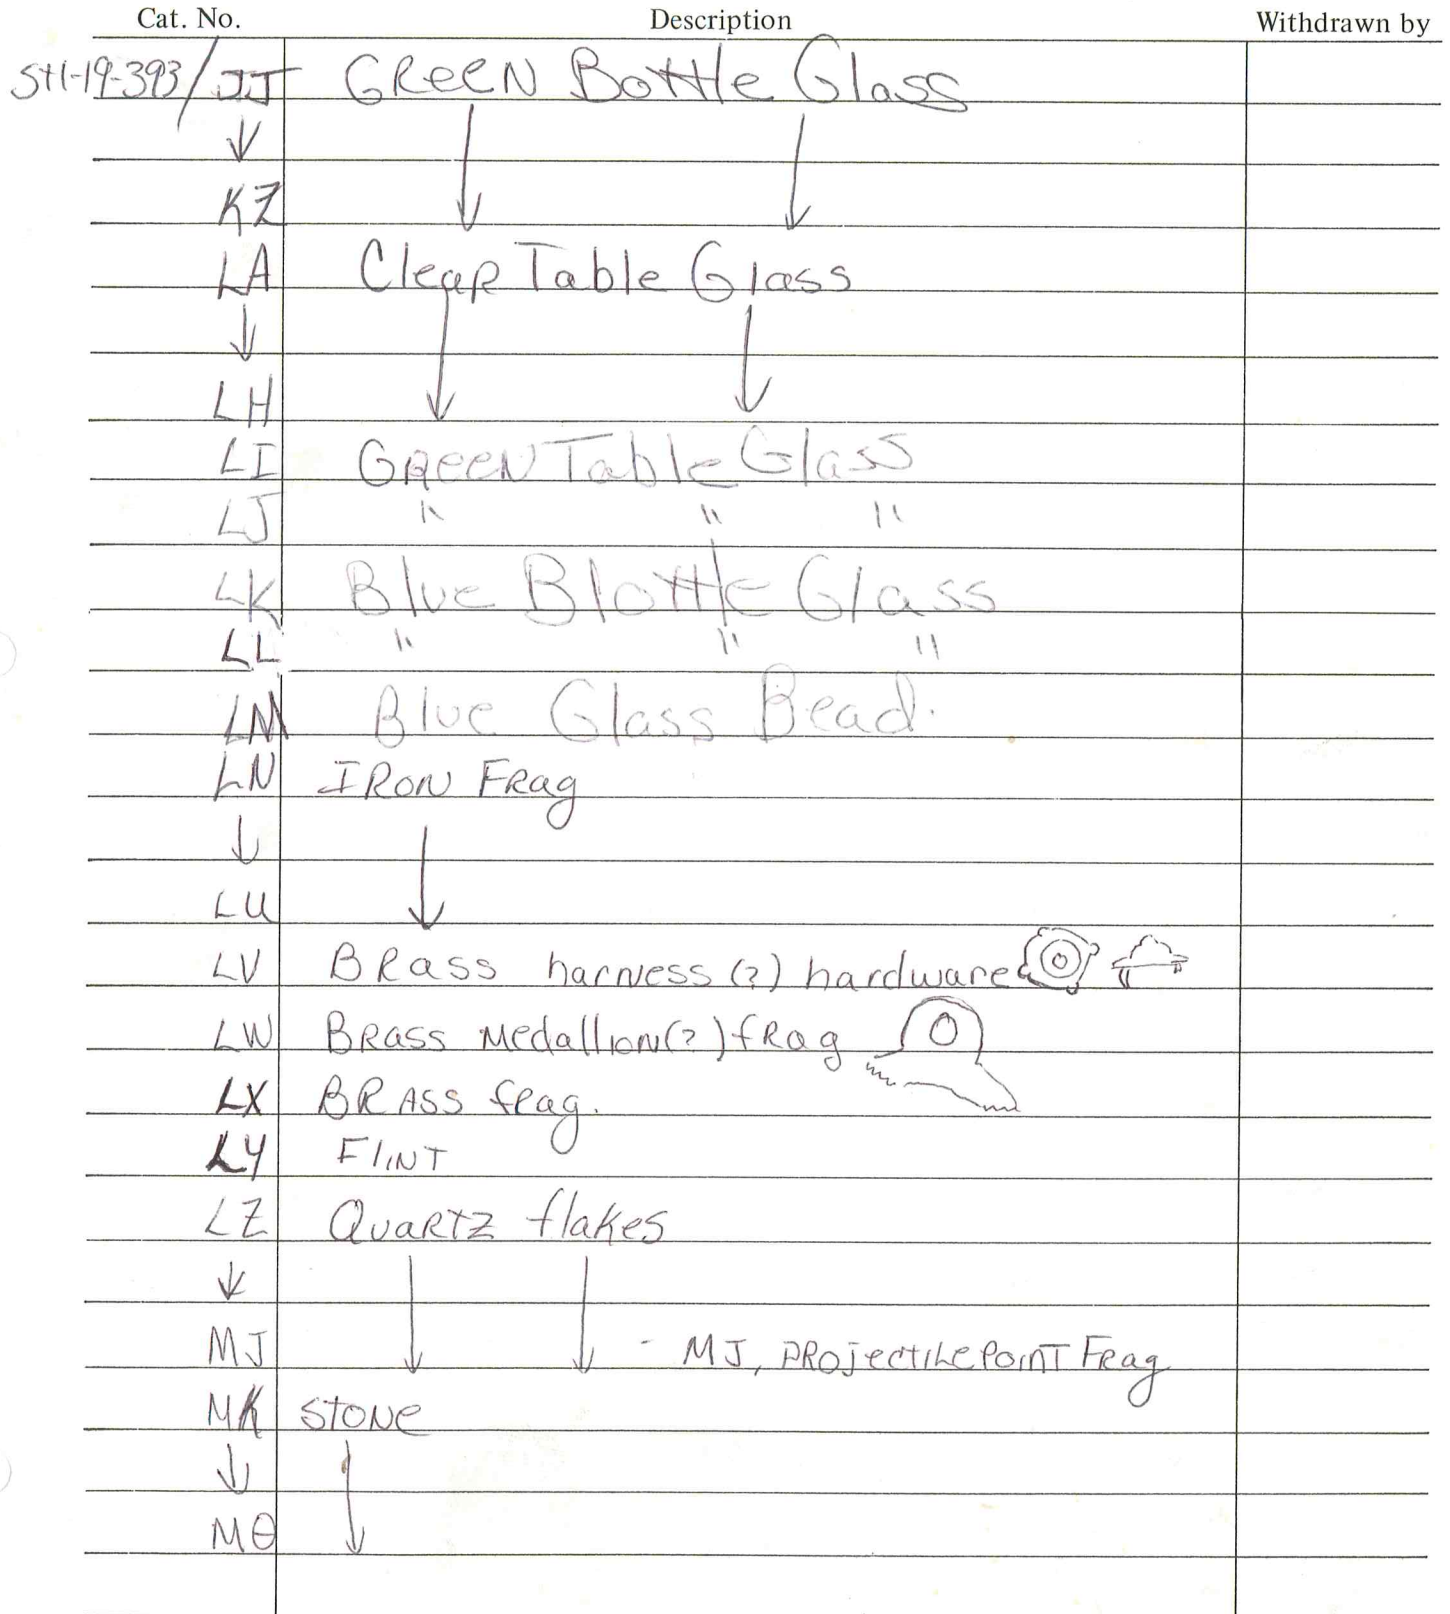 Cat. No. Description Withdrawn by
St1-19-393/JJ Green Bottle Glass
↓
KZ
LA Clear Table Glass
↓
LH
LI Green Table Glass
LJ " " "
LK Blue Blottle Glass
LL " " "
LM Blue Glass Bead.
LN Iron Frag
↓
LU
LV Brass harness (?) hardware
LW Brass Medallion(?) frag
LX Brass frag.
LY Flint
LZ Quartz flakes
↓
MJ - MJ, Projectile Point Frag
MK Stone
↓
MO